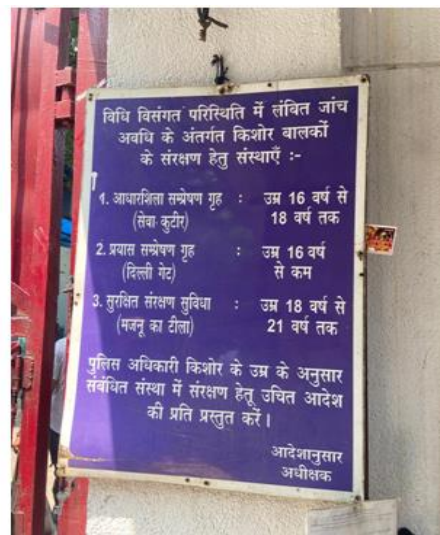 विधि विसंगत परिस्थिति में लंबित जांच
अवधि के अंतर्गत किशोर बालकों
के संरक्षण हेतु संस्थाएँ :-
1. आधारशिला सम्प्रेषण गृह : उम्र 16 वर्ष से
(सेवा कुटीर) 18 वर्ष तक
2. प्रयास सम्प्रेषण गृह : उम्र 16 वर्ष
(दिल्ली गेट) से कम
3. सुरक्षित संरक्षण सुविधा : उम्र 18 वर्ष से
(मजनू का टीला) 21 वर्ष तक
पुलिस अधिकारी किशोर के उम्र के अनुसार
संबंधित संस्था में संरक्षण हेतू उचित आदेश
की प्रति प्रस्तुत करें।
आदेशानुसार
अधीक्षक